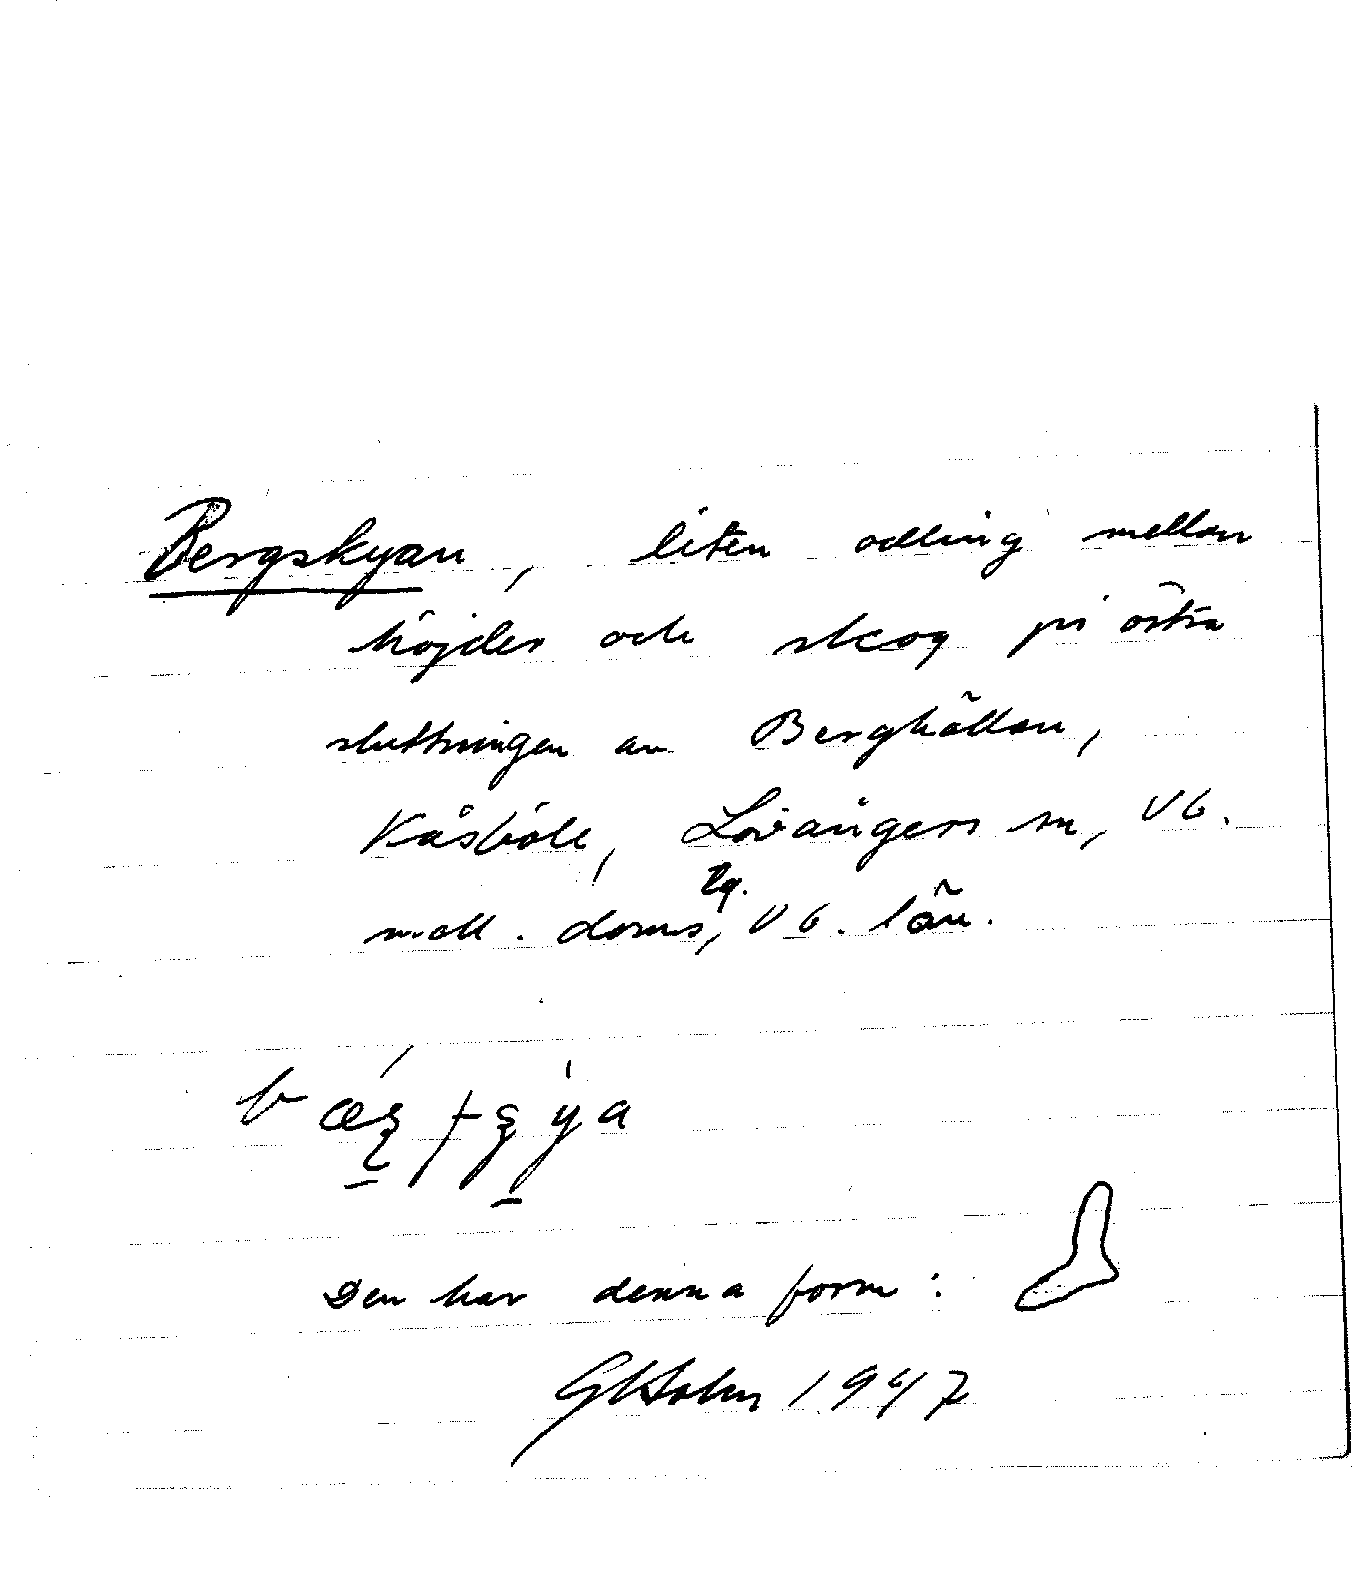 Bergskyan, liten odling mellan
höjder och skog på östra
sluttningen av Berghällan,
Kåsböle, Lövångers sn, Vb.
mell. doms, Vb. län.
Den har denna form:
GHolm 1947